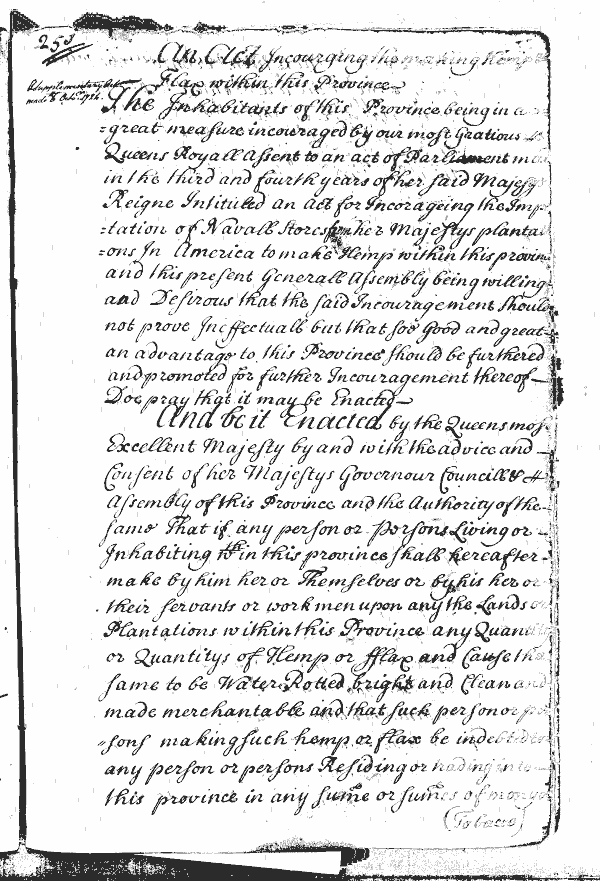 253
An Act Incourging the making Hemp &
Supplementary Act
made 8 Octr. 1704.
Flax within this Province
The Inhabitants of this Province being in a
=great measure incouraged by our most Gratious
Queens Royall Assent to an act of Parliament
in the third and fourth years of her said Majesty
Reigne Intituled an Act for Incorageing the Imp
=tation of Navall Stores from her Majestys planta
=ons In America to make Hemp within this provin
and this present Generall Assembly being willing
and Desirous that the said Incouragement should
not prove Ineffectuall but that soe Good and great
an advantage to this Province should be furthered
and promoted for further Incouragement thereof
Doe pray that it may be Enacted
And be it Enacted by the Queens mos
Excellent Majesty by and with the advice and
Consent of her Majestys Governour Councill &
Assembly of this Province and the Authority of the
same That if any person or Persons Living or
Inhabiting within this province shall hereafter
make by him her or Themselves or by his her or
their servants or workmen upon any the Lands or
Plantations within this Province any Quantity
or Quantitys of Hemp or fflax and Cause the
same to be Water Rotted bright and Clean and
made merchantable and that such person or per
=sons making such hemp or flax be indebted to
any person or persons Residing or tradeing into
this province in any sume or sumes of money or
(Tobacco)